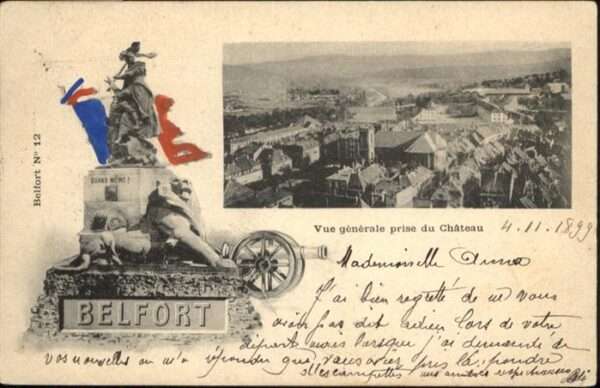 Belfort N° 12
QUAND MÊME!
BELFORT
Vue générale prise du Château
4.11.1899
Mademoiselle Anna
J'ai bien regretté de ne vous
avoir pas dit adieu lors de votre
départ mais lorsque j'ai demandé de
vos nouvelles on m'a répondu que vous aviez pris la poudre
d'escampette mes